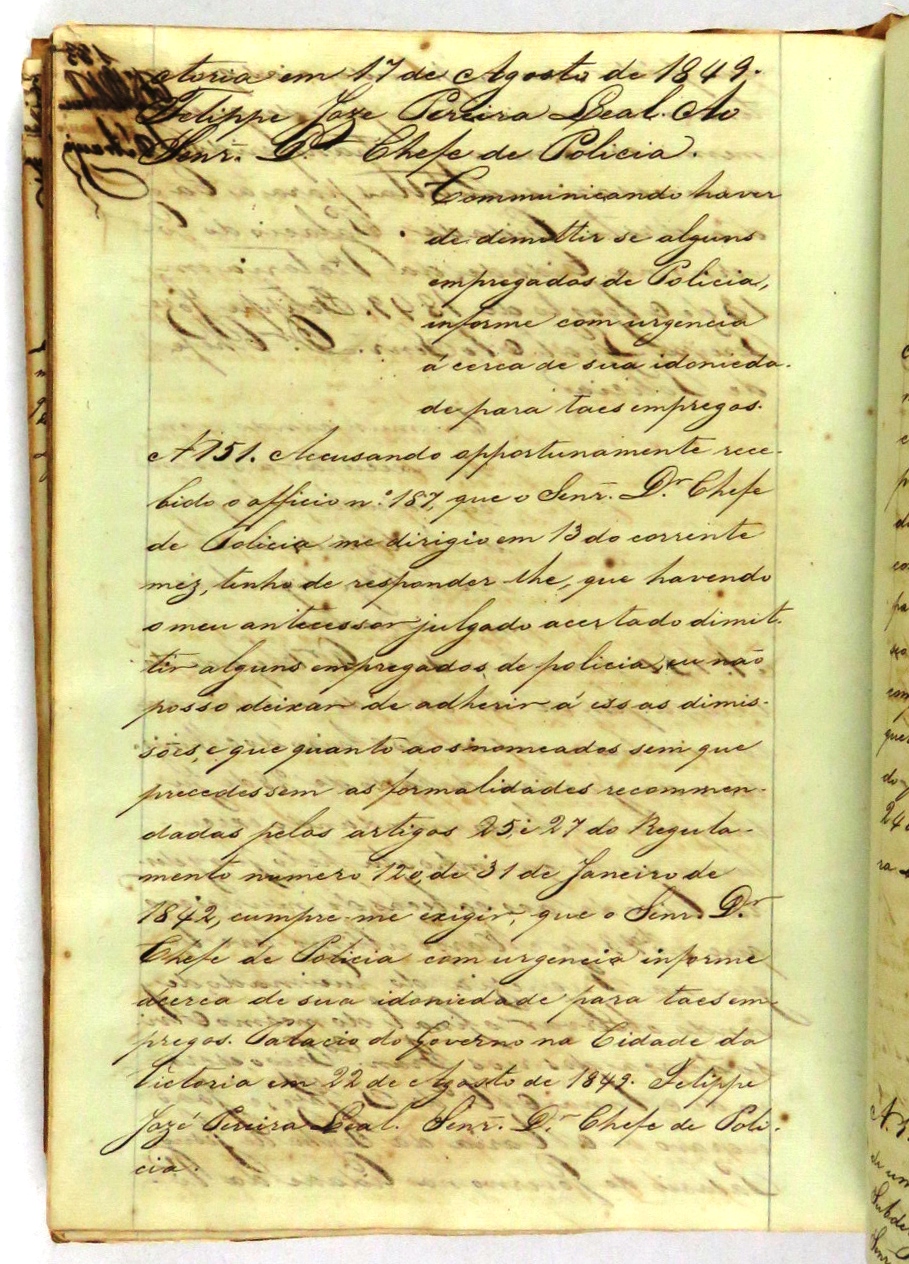 ctoria em 17 de Agosto de 1849.
Felippe Joze Pereira Leal. Ao
Senr. Dr. Chefe de Policia.
Communicando haver
de demittir se alguns
empregados de Policia,
informe com urgencia
á cerca de sua idonieda-
de para taes empregos.
N 151. Accusando opportunamente rece-
bido o officio n.º 187, que o Senr. Dr. Chefe
de Policia me dirigio em 13 do corrente
mez, tenho de responder lhe, que havendo
o meu antecessor julgado acertado dimit-
tir alguns empregados de policia, eu não
posso deixar de adherir á essas dimis-
sões, e que quanto aos nomeados sem que
precedessem as formalidades recommen-
dadas pelos artigos 25, e 27 do Regula-
mento numero 120, de 31 de Janeiro de
1842, cumpre-me exigir, que o Senr. Dr.
Chefe de Policia com urgencia informe
ácerca de sua idoniedade para taes em-
pregos. Palacio do Governo na Cidade da
Victoria em 22 de Agosto de 1849. Felippe
Jozé Pereira Leal. Senr. Dr. Chefe de Poli-
cia.